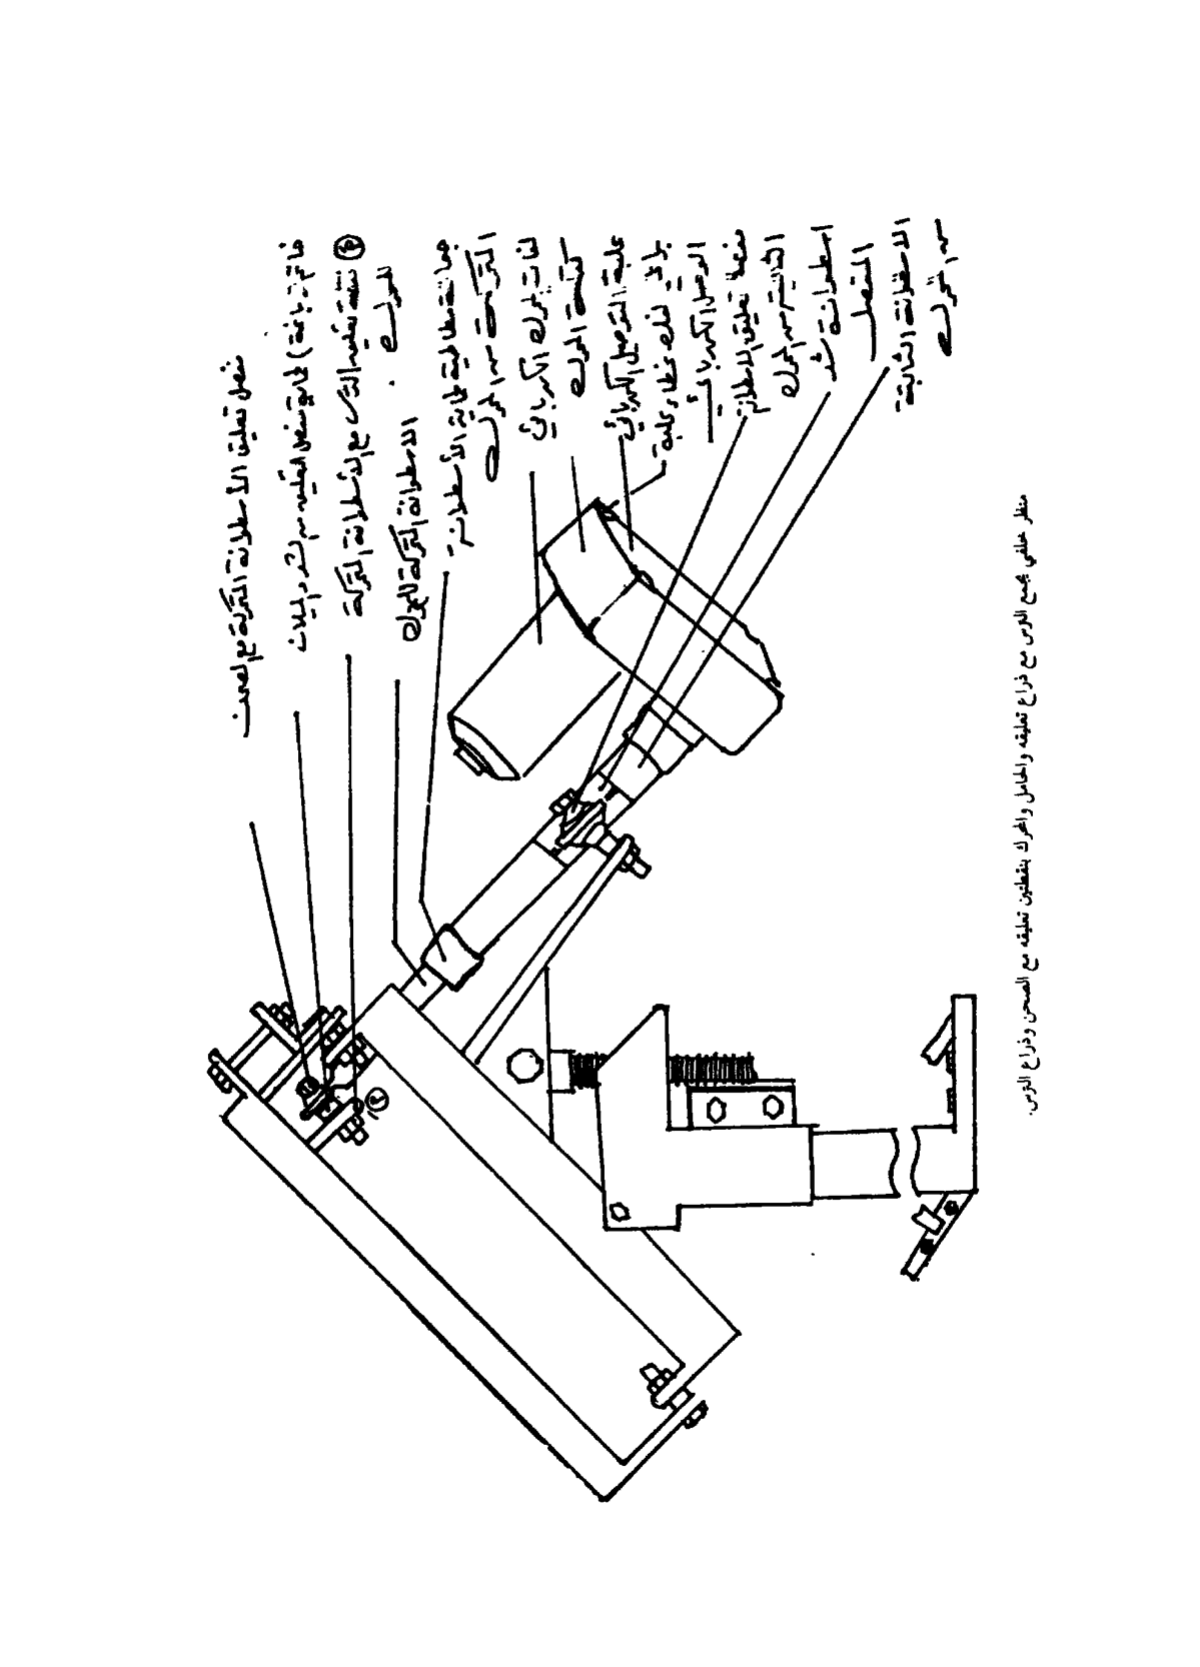 مفصل تعليق الأسطوانة المتحركة مع الصحن
لحماية مفصل التعليق من
نقطة تعليق الترس مع الأسطوانة المتحركة
للمحرك
الاسطوانة المتحركة للمحرك
مطاطية لحماية الأسطوانة
المتحركة من المحرك
لفات المحرك الكهربائي
كتلة المحرك
علبة التوصيل الكهربائي
براغي لفك غطاء علبة
التوصيل الكهربائي
تعليق الاسطوانة
الثابتة من المحرك
اسطوانة شد
المفصل
الاسطوانة الثابتة
من المحرك
م
منظر خلفي يجمع الترس مع ذراع تعليقه والحامل والمحرك بنقطتين تعليقه مع الصحن وذراع الترس.